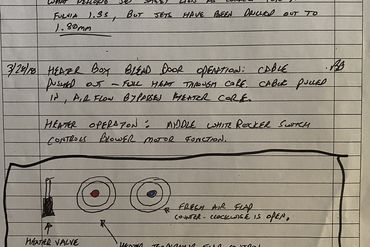 FULVIA 1.3S, BUT JETS HAVE BEEN DRILLED OUT TO
1.80mm
3/25/18 HEATER BOX BLEND DOOR OPERATION: CABLE
PUSHED OUT - FULL HEAT THROUGH CORE. CABLE PULLED
IN, AIR FLOW BYPASSES HEATER CORE.
HEATER OPERATION: MIDDLE WHITE ROCKER SWITCH
CONTROLS BLOWER MOTOR FUNCTION.
FRESH AIR FLAP
COUNTER-CLOCKWISE IS OPEN.
HEATER VALVE